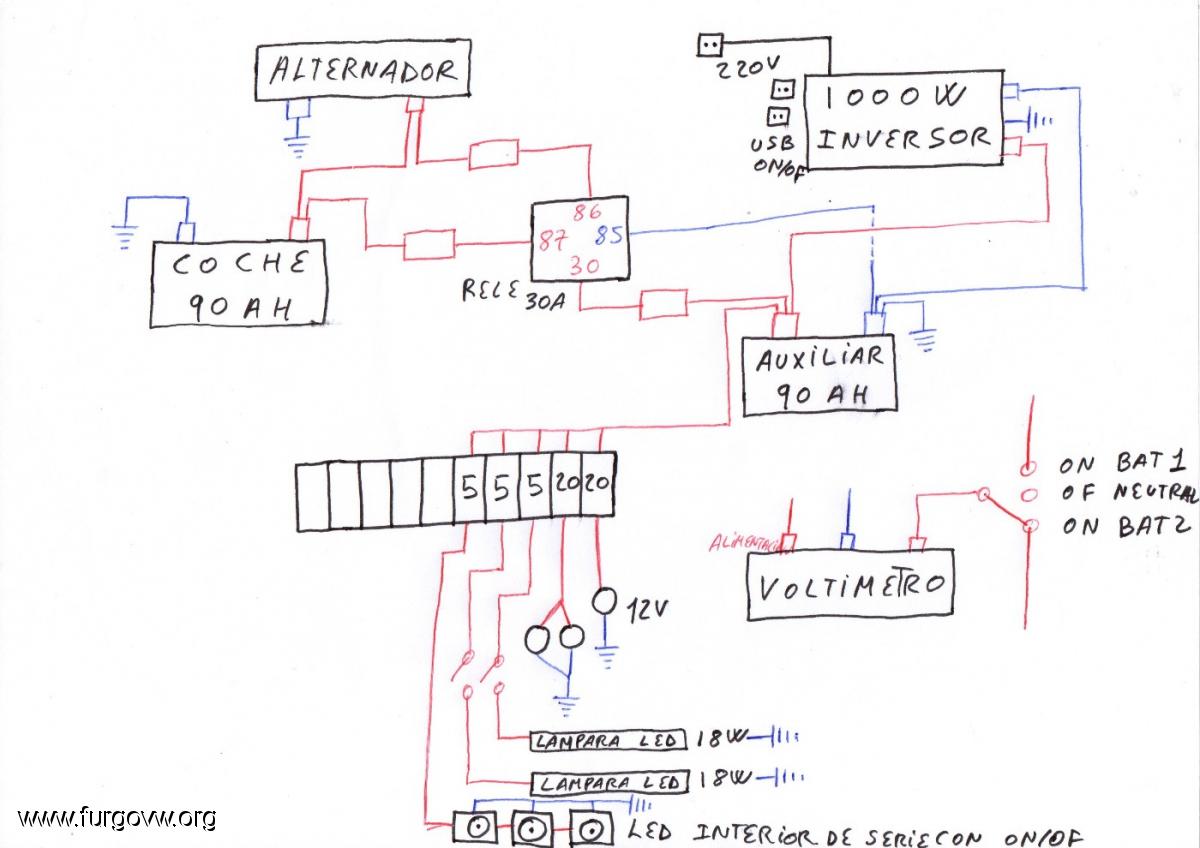 ALTERNADOR
220V
1000W
INVERSOR
USB
ON/OF
COCHE
90 AH
86
87
85
30
RELE 30A
AUXILIAR
90 AH
5
5
5
20
20
12V
ON BAT1
OF NEUTRAL
ON BAT2
VOLTIMETRO
LAMPARA LED 18W
LAMPARA LED 18W
LED INTERIOR DE SERIECON ON/OF
www.furgovw.org